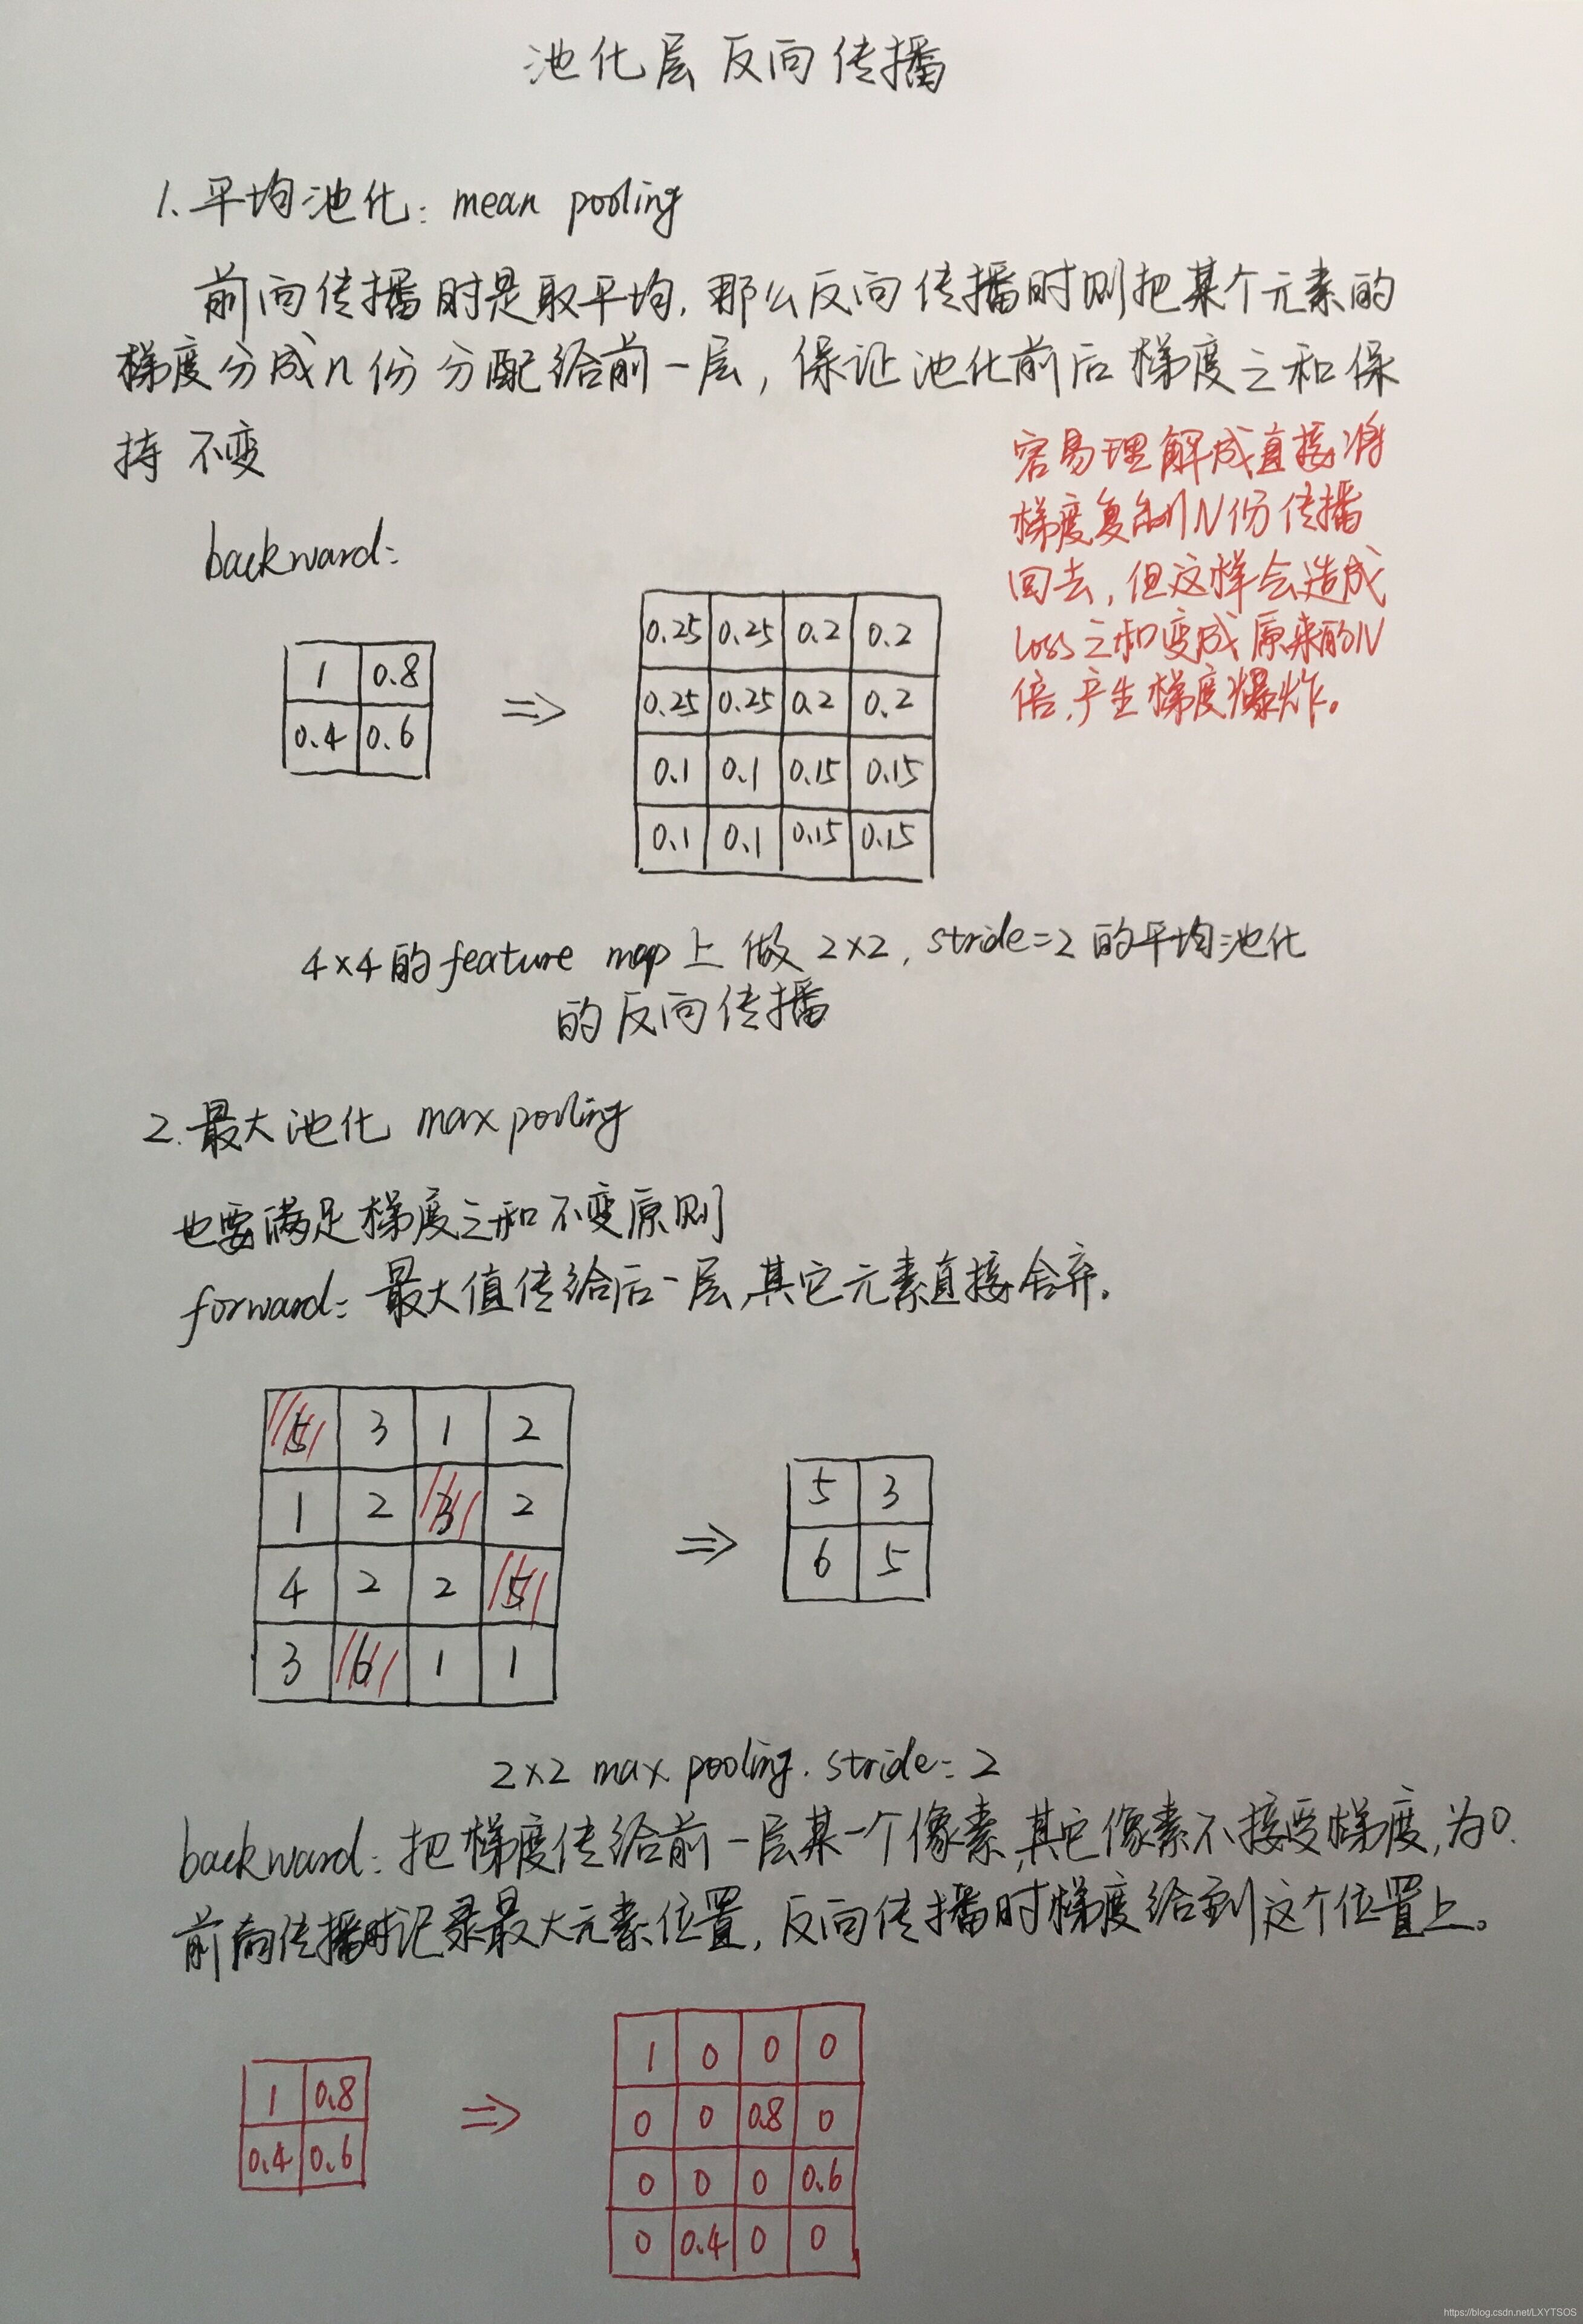 池化层反向传播
1. 平均池化: mean pooling
前向传播时是取平均, 那么反向传播时则把某个元素的
梯度分成n份分配给前一层, 保证池化前后梯度之和保
持不变
容易理解成直接将
梯度复制N份传播
回去, 但这样会造成
loss之和变成原来的N
倍, 产生梯度爆炸。
backward:
1 0.8
0.4 0.6
⇒
0.25 0.25 0.2 0.2
0.25 0.25 0.2 0.2
0.1 0.1 0.15 0.15
0.1 0.1 0.15 0.15
4×4的feature map上做2×2, stride=2的平均池化
的反向传播
2. 最大池化 max pooling
也要满足梯度之和不变原则
forward: 最大值传给后一层,其它元素直接舍弃.
5 3 1 2
1 2 3 2
4 2 2 5
3 6 1 1
⇒
5 3
6 5
2×2 max pooling. stride=2
backward: 把梯度传给前一层某一个像素,其它像素不接受梯度,为0.
前向传播时记录最大元素位置, 反向传播时梯度给到这个位置上。
1 0.8
0.4 0.6
⇒
1 0 0 0
0 0 0.8 0
0 0 0 0.6
0 0.4 0 0
https://blog.csdn.net/LXYTSOS